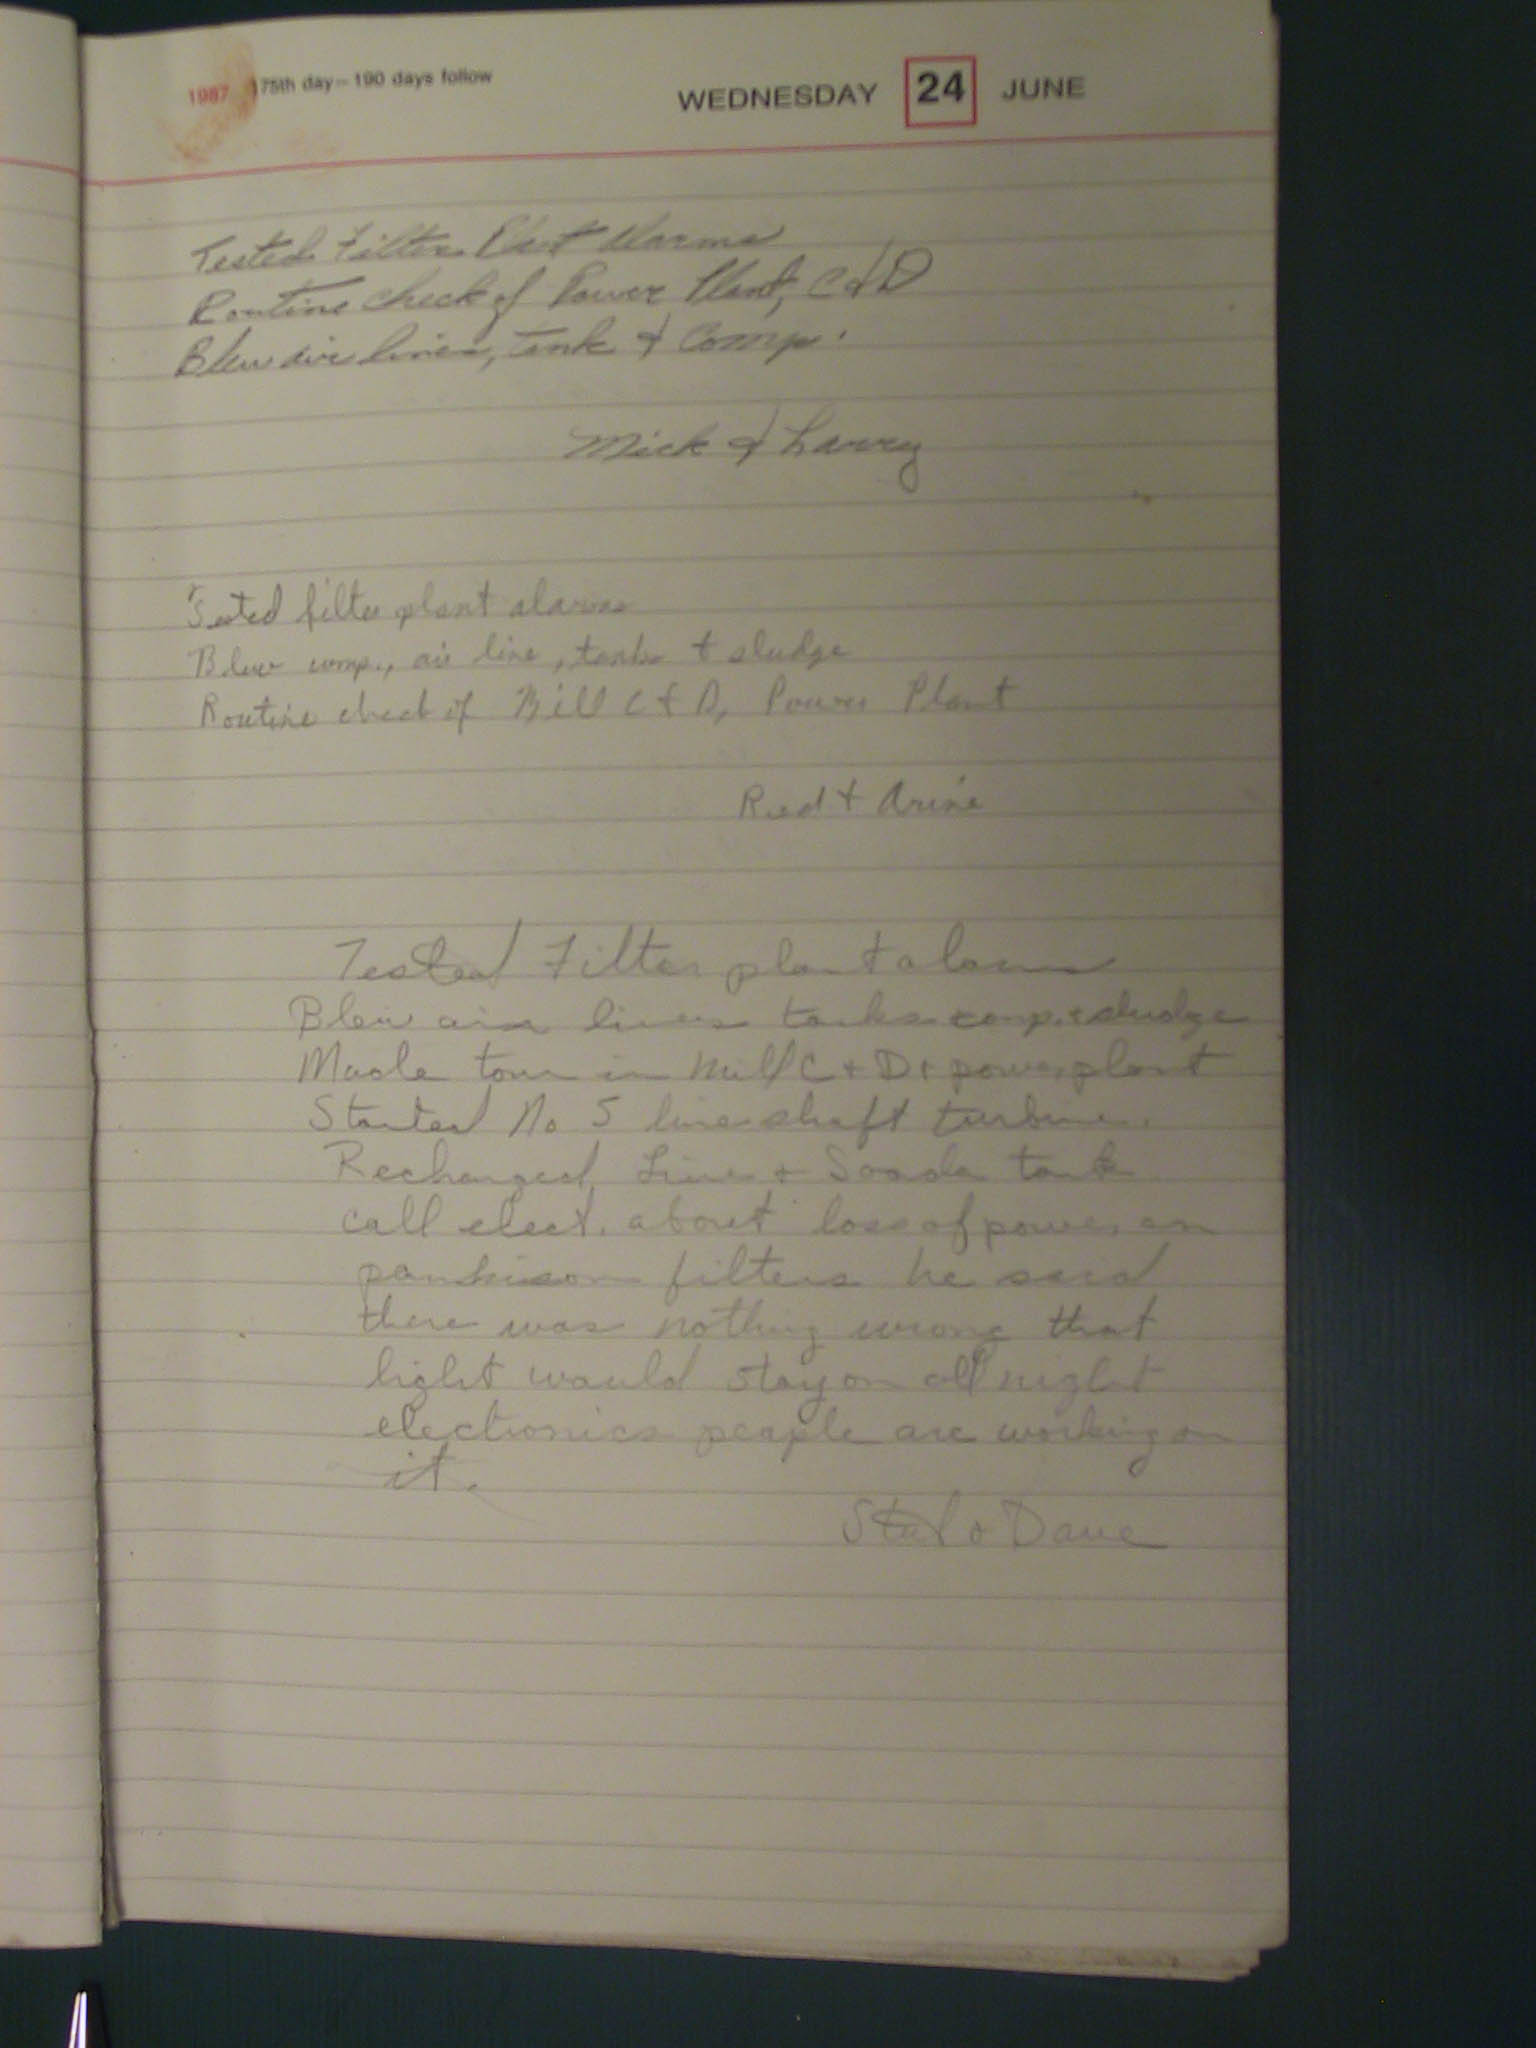 1987 175th day – 190 days follow
WEDNESDAY 24 JUNE
Tested Filter Plant Alarms
Routine check of Power Plant, C & D
Blew air lines, tank & Comp.
Mick & Larry
Tested filter plant alarms
Blew comp., air line, tanks + sludge
Routine check of Bill C & D, Power Plant
Red + Arine
Tested Filter plant alarm
Blew air lines tanks comp. + sludge
Made tour in Mill C + D + power plant
Started No 5 line shaft turbine.
Recharged Lime + Soada tank
call elect. about loss of power on
filters he said
there was nothing wrong that
light would stay on all night
electronics people are working on
it.
& Dave